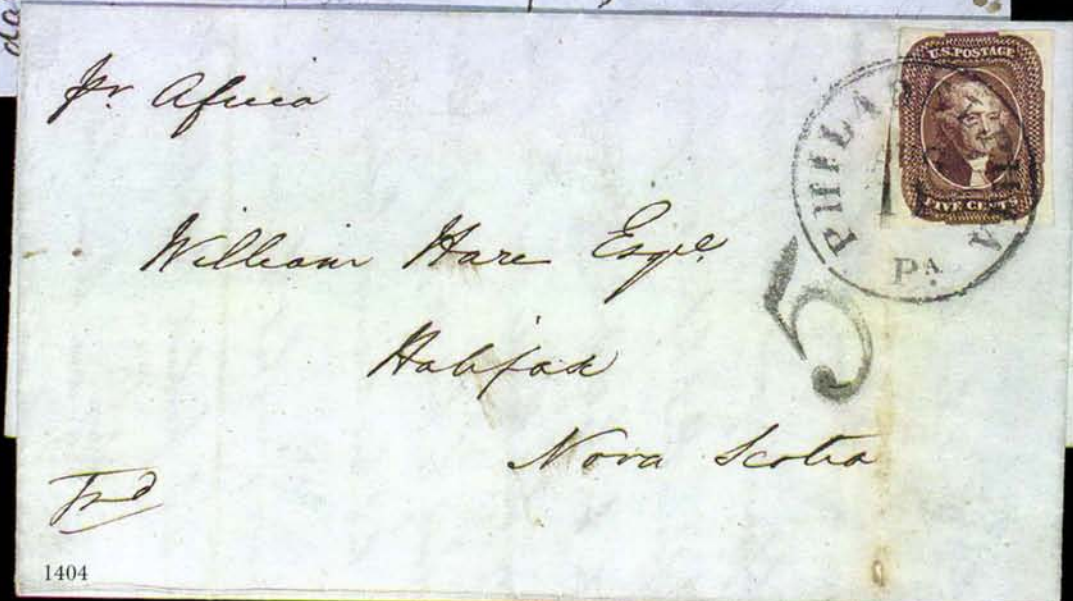 pr. Africa
U.S. POSTAGE
FIVE CENTS
PHILADA
PA
5
William Hare Esqr.
Halifax
Nova Scotia
1404